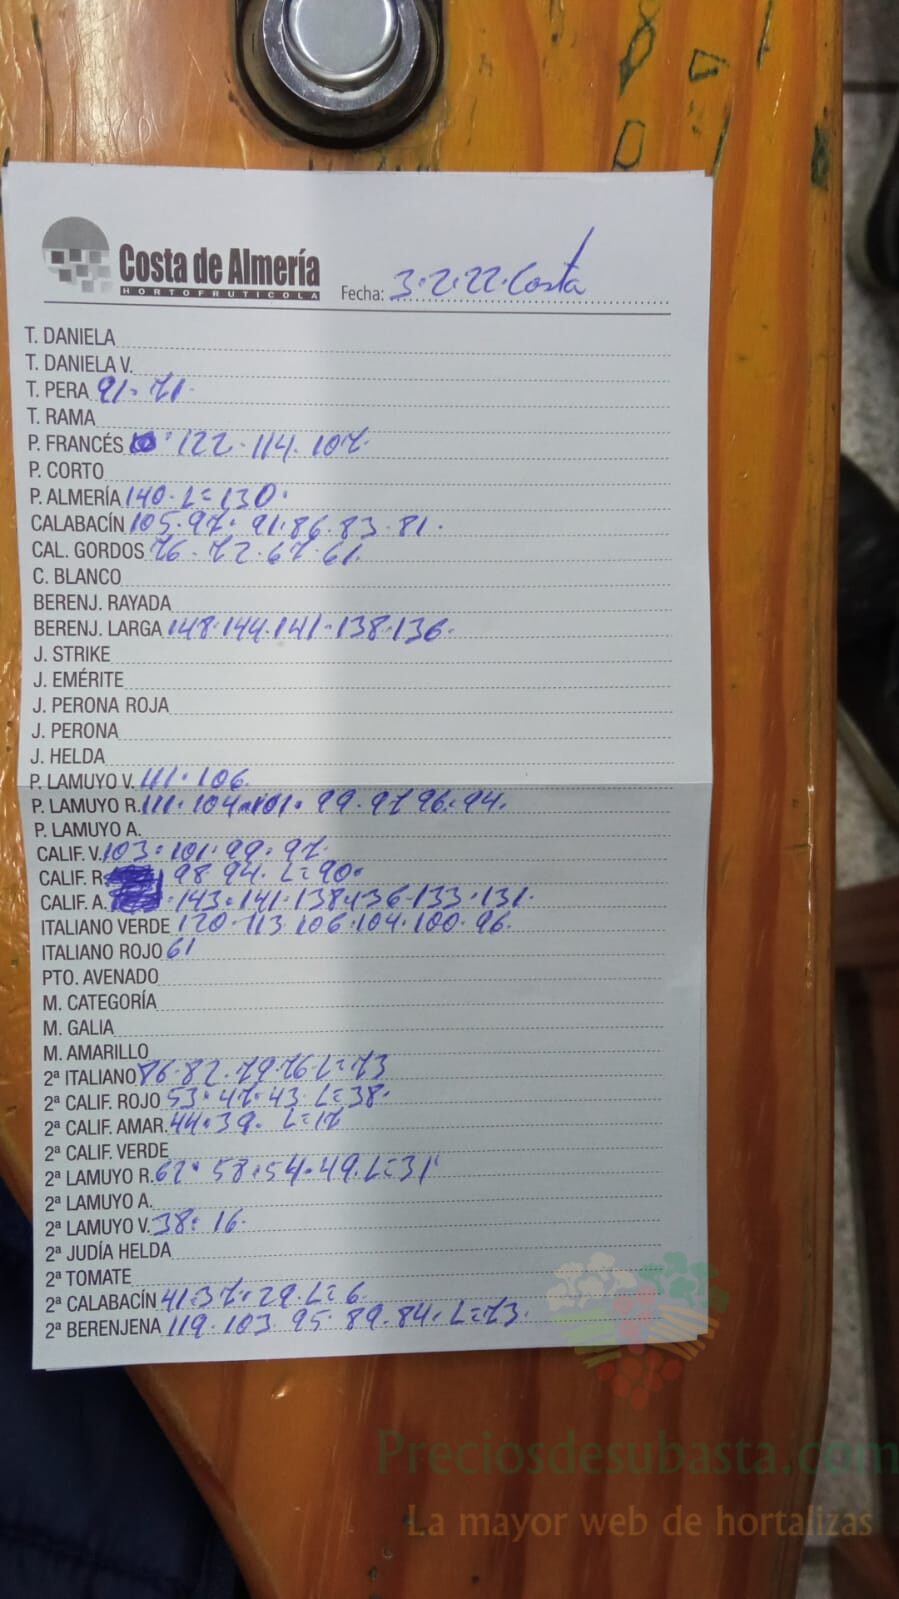 Costa de Almería
HORTOFRUTICOLA
Fecha: 3-2-22. Costa
T. DANIELA
T. DANIELA V.
T. PERA 91. 71.
T. RAMA
P. FRANCÉS 122. 114. 107.
P. CORTO
P. ALMERÍA 140. L=130.
CALABACÍN 105. 97. 91. 86. 83. 81.
CAL. GORDOS 76. 72. 67. 61.
C. BLANCO
BERENJ. RAYADA
BERENJ. LARGA 148. 144. 141. 138. 136.
J. STRIKE
J. EMÉRITE
J. PERONA ROJA
J. PERONA
J. HELDA
P. LAMUYO V. 111. 106.
P. LAMUYO R. 111. 104. 101. 99. 97 96. 94.
P. LAMUYO A.
CALIF. V. 103. 101. 99. 97.
CALIF. R. 98 94. L=90.
CALIF. A. 143. 141. 138. 136. 133. 131.
ITALIANO VERDE 120. 113. 106. 104. 100. 96.
ITALIANO ROJO 61
PTO. AVENADO
M. CATEGORÍA
M. GALIA
M. AMARILLO
2ª ITALIANO 86. 82. 79. 76 L=73
2ª CALIF. ROJO 53. 47. 43. L=38.
2ª CALIF. AMAR. 44. 39. L=17
2ª CALIF. VERDE
2ª LAMUYO R. 62. 58. 54. 49. L=31
2ª LAMUYO A.
2ª LAMUYO V. 38. 16.
2ª JUDÍA HELDA
2ª TOMATE
2ª CALABACÍN 41. 37. 29. L=6.
2ª BERENJENA 119. 103. 95. 89. 84. L=73.
Preciosdesubasta.com
La mayor web de hortalizas